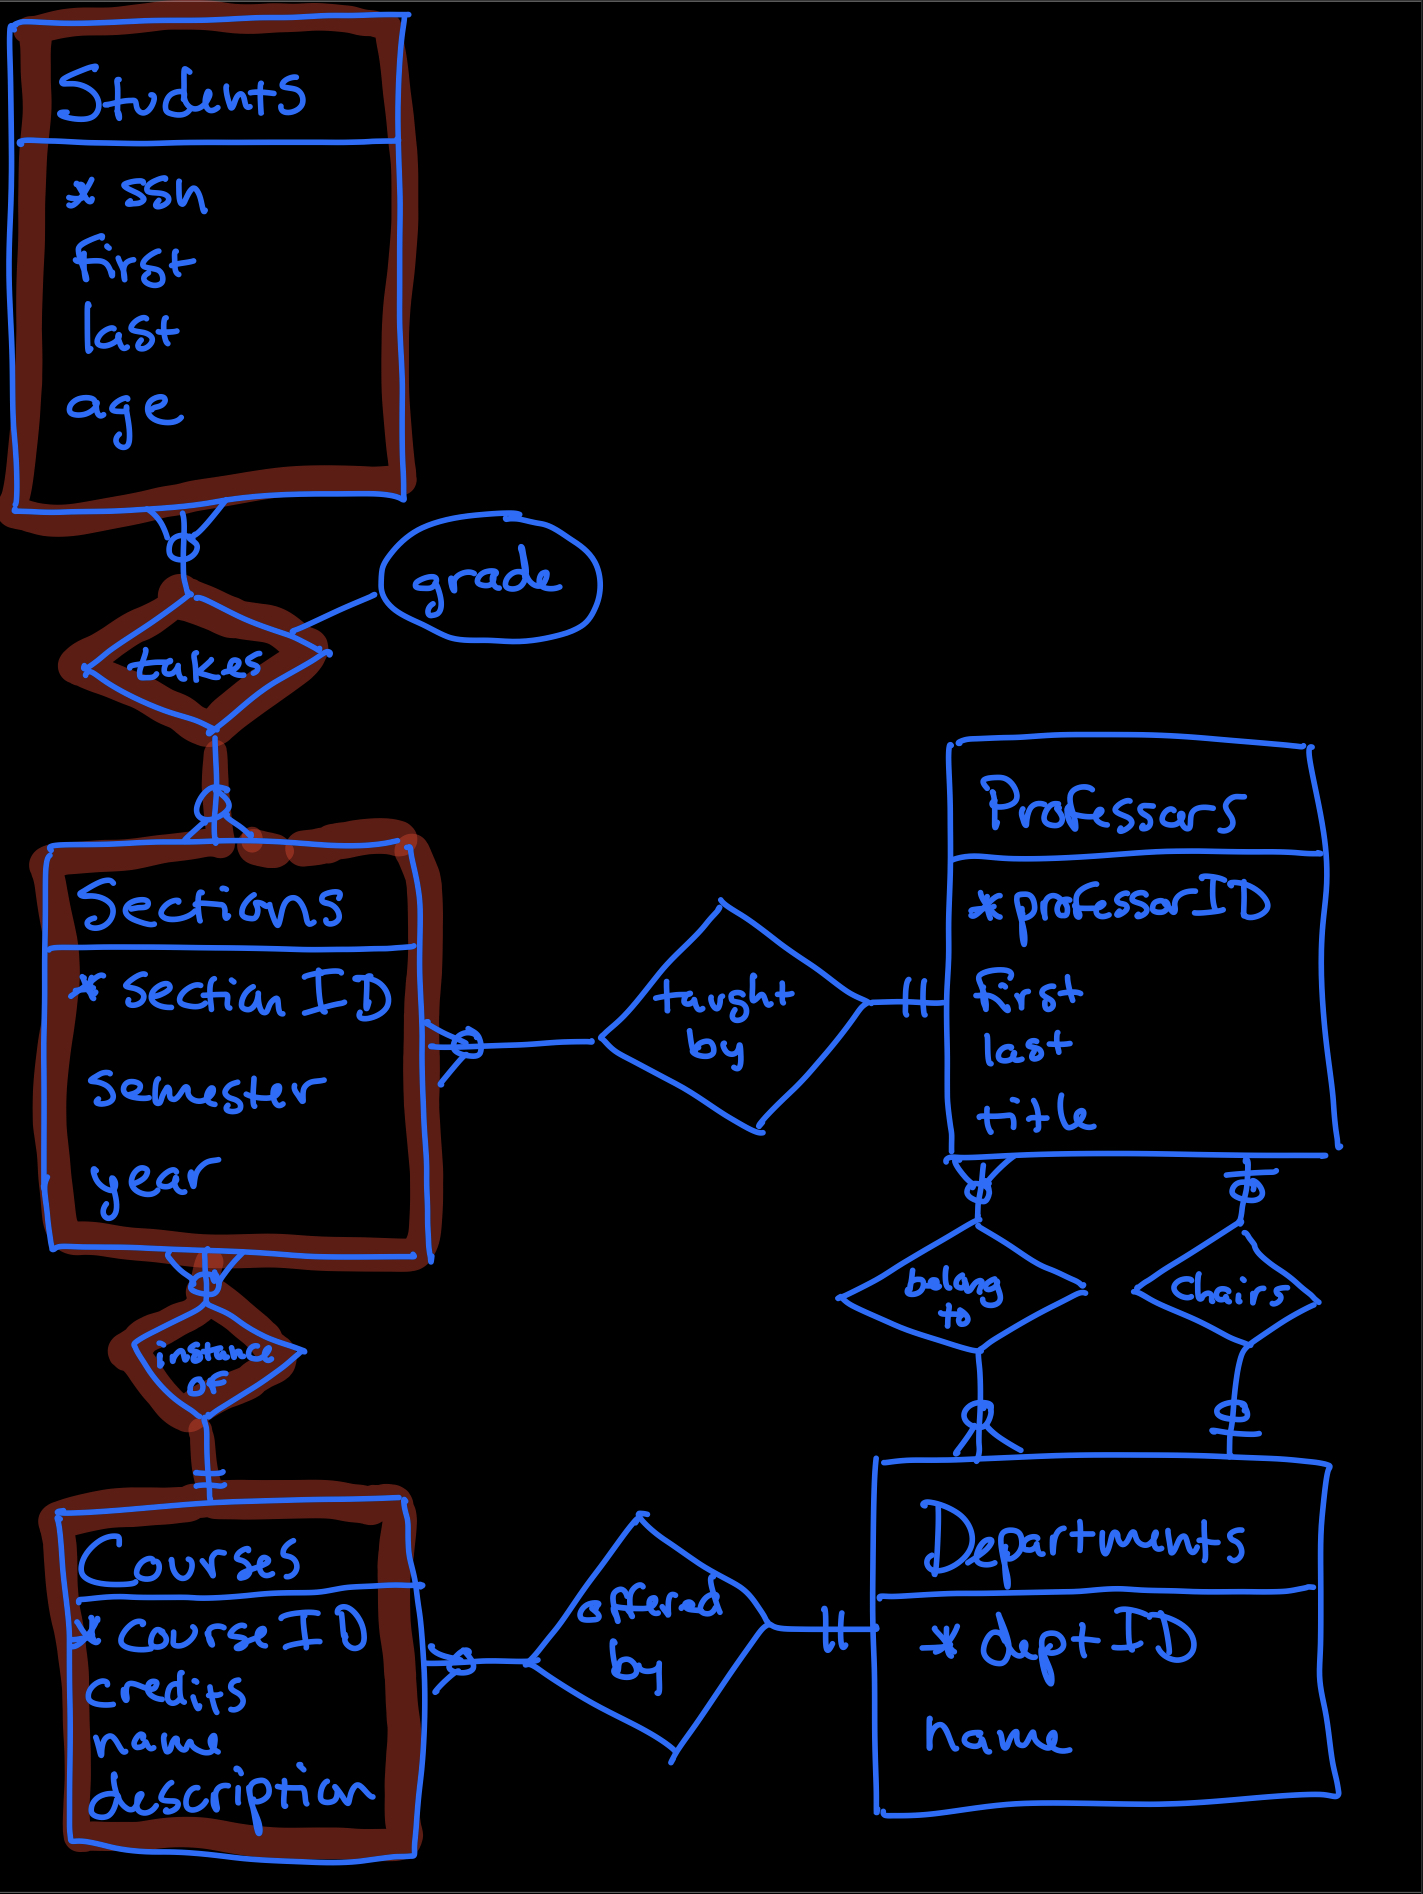 Students
* ssn
first
last
age
grade
takes
Sections
* section ID
semester
year
taught
by
Professors
* professorID
first
last
title
instance
of
belong
to
chairs
Courses
* CourseID
credits
name
description
offered
by
Departments
* deptID
name